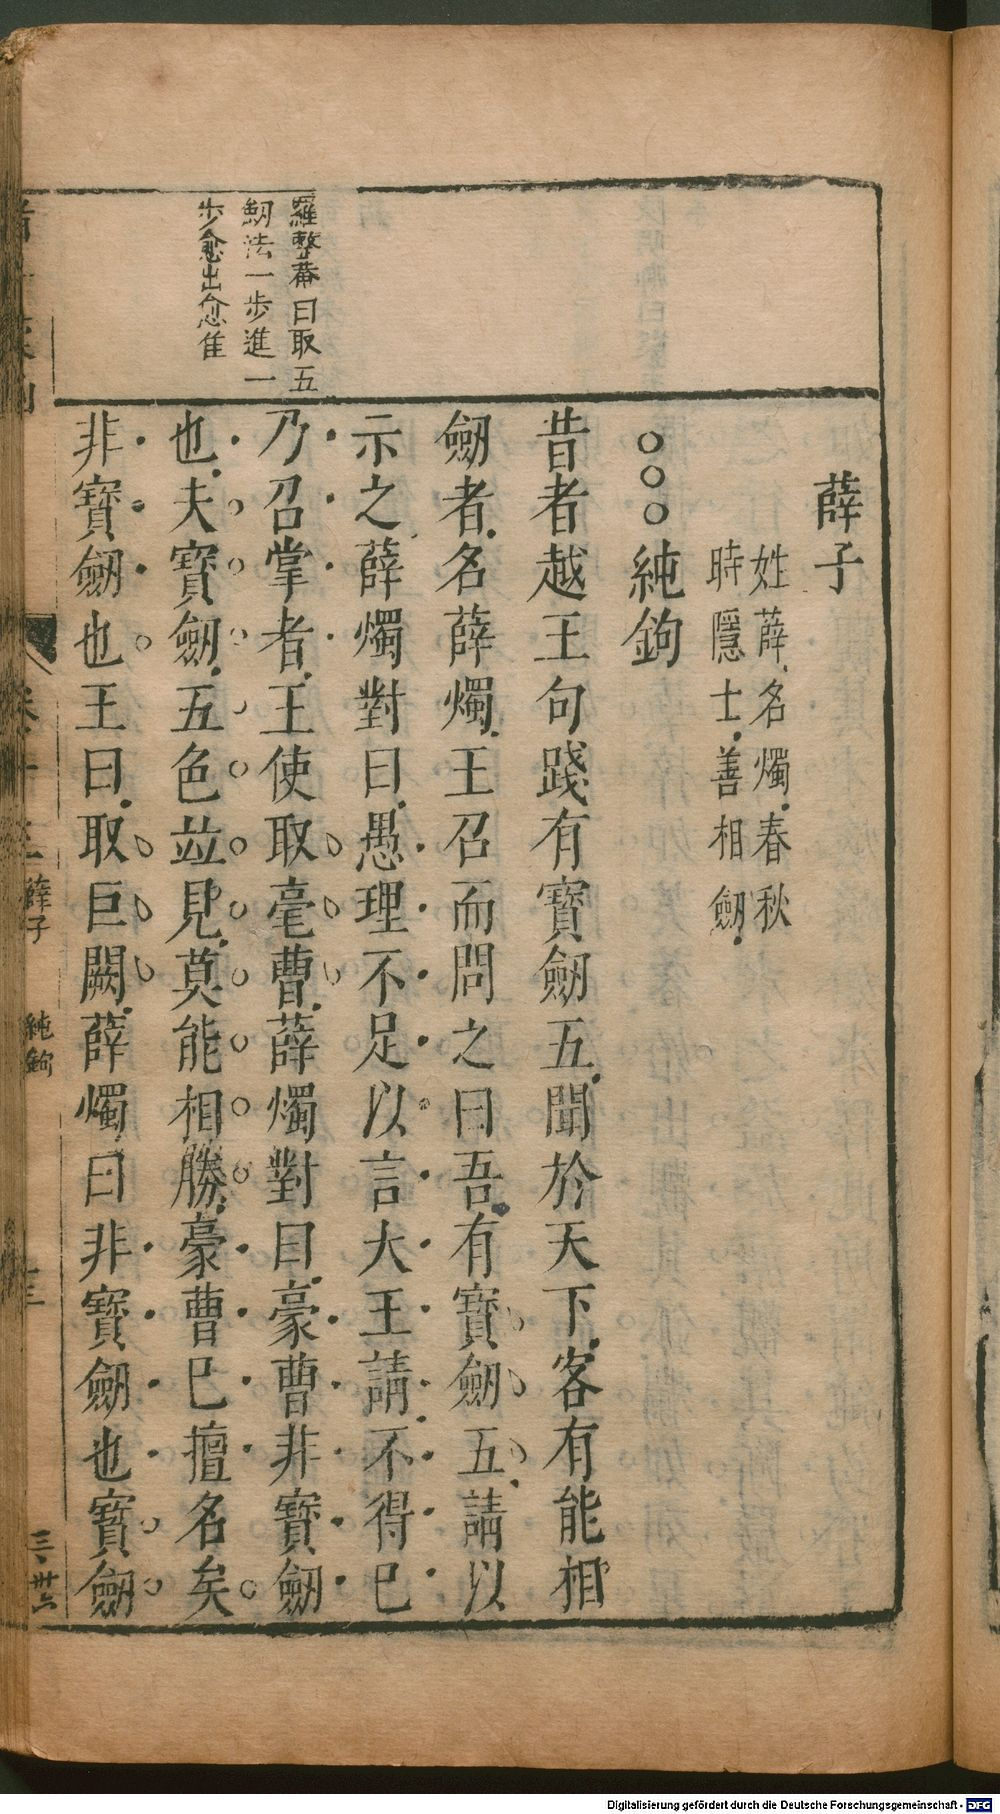 薛子
姓薛名燭春秋
時隱士善相劒
○○○純鉤
昔者越王句踐有寶劒五聞於天下客有能相
劒者名薛燭王召而問之曰吾有寶劒五請以
示之薛燭對曰愚理不足以言大王請不得已
乃召掌者王使取毫曹薛燭對曰豪曹非寶劒
也夫寶劒五色竝見莫能相勝豪曹已擅名矣
非寶劒也王曰取巨闕薛燭曰非寶劒也寶劒
羅整菴曰取五
劒法一步進一
步愈出愈隹
薛子
純鉤
Digitalisierung gefördert durch die Deutsche Forschungsgemeinschaft - DFG